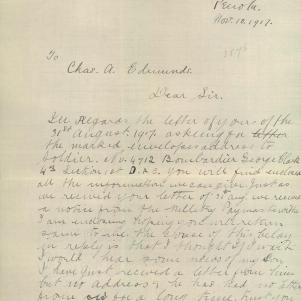 Penola.
Nov. 12. 1917.
To
Chas. A. Edmunds.
Dear Sir.
In regards the letter of yours of the
31st August 1917 asking for
the marked envelopes address to
Soldier. No. 4712 Bombardier George Clark
4th Section 1st D.A.C. You will find enclosed
all the information we can give. Just as
we received your letter of 31st Aug. we received
a notice from the Military Paymaster
I am enclosing hoping you will return
same to me. The cause of this delay
in reply is that I thought I
would hear some news of my Son
I have just received a letter from him
but no address he has had no letter
from for a long time